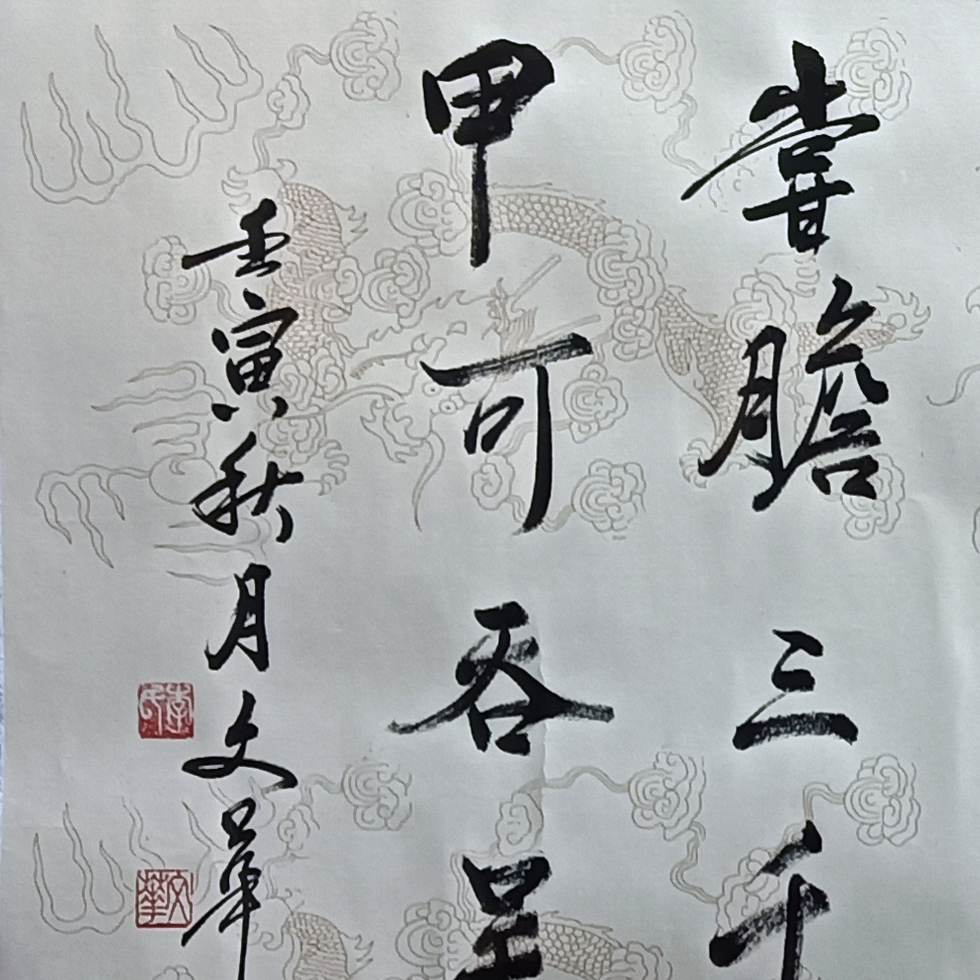 甞膽三千
甲可吞吴
壬寅秋月文華
文華